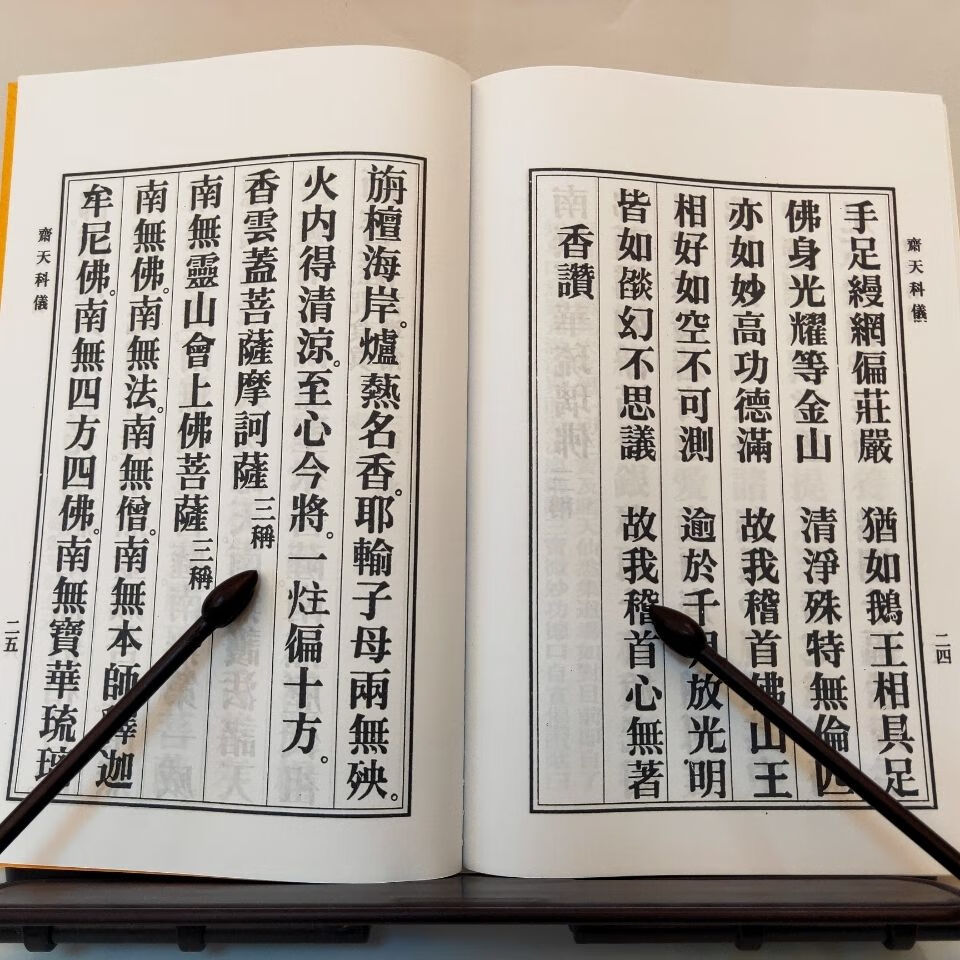 齋天科儀
二四
手足縵網偏莊嚴 猶如鵝王相具足
佛身光耀等金山 清淨殊特無倫
亦如妙高功德滿 故我稽首佛山王
相好如空不可測 逾於千月放光明
皆如燄幻不思議 故我稽首心無著
香讚
旃檀海岸。爐熱名香。耶輸子母兩無殃。
火内得清涼。至心今將。一炷偏十方。
香雲蓋菩薩摩訶薩 三稱
南無靈山會上佛菩薩 三稱
南無佛。南無法。南無僧。南無本師釋迦
牟尼佛。南無四方四佛。南無寶華琉璃
齋天科儀
二五